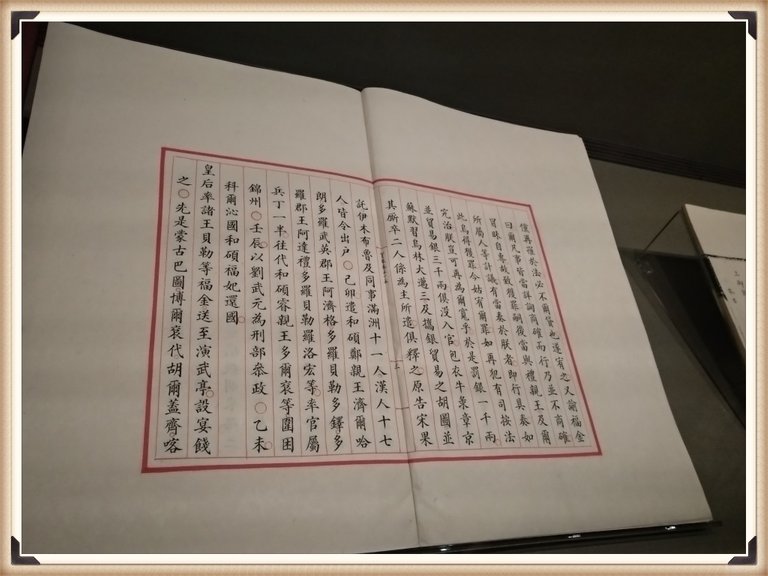 復再罹於法必不爾貸也遂宥之又諭福金
曰爾凡事皆當詳詢商確而行乃並不商確
冒昧自專故致獲罪嗣後當與禮親王及爾
所屬人等計議有當奏於朕者即行具奏如
此烏得獲罪今姑宥爾罪如再犯有司按法
究治朕豈可再為爾寬乎於是罰銀一千兩
並貿易銀三千兩俱沒入官包衣牛彔章京
蘇默習烏林大邁三及攜銀貿易之胡圖並
其廝卒二人係為主所遣俱釋之原告宋果
託伊木布魯及同事滿洲十一人漢人十七
人皆令出戶○己卯遣和碩鄭親王濟爾哈
朗多羅武英郡王阿濟格多羅貝勒多鐸多
羅郡王阿達禮多羅貝勒羅洛宏等率官屬
兵丁一半往代和碩睿親王多爾袞等圍困
錦州○壬辰以劉武元為刑部參政○乙未
科爾沁國和碩福妃還國
皇后率諸王貝勒等福金送至演武亭設宴餞
之○先是蒙古巴圖博爾袞代胡爾蓋齊喀